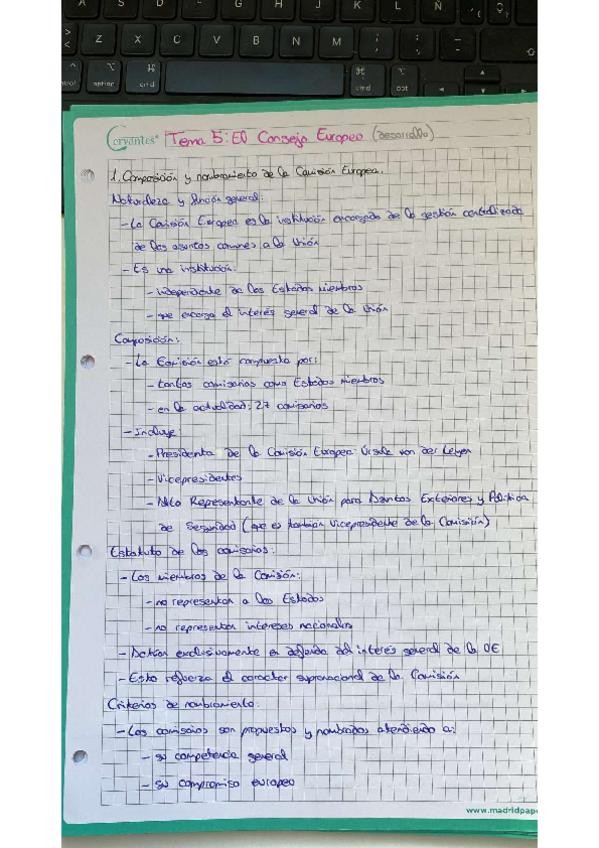 A S D F G H J K L Ñ
> < Z X C V B N M ; , : . _ -
control alt option cmd cmd alt option
Cervantes Tema 5: El Consejo Europeo (desarrollo)
1. Composición y nombramiento de la Comisión Europea.
Naturaleza y función general:
- La Comisión Europea es la institución encargada de la gestión centralizada
de los asuntos comunes a la Unión
- Es una institución:
- independiente de los Estados miembros
- que encarga el interés general de la Unión
Composición:
- La Comisión está compuesta por:
- tantos comisarios como Estados miembros
- en la actualidad: 27 comisarios
- Incluye:
- Presidenta de la Comisión Europea: Ursula von der Leyen
- Vicepresidentes
- Alto Representante de la Unión para Asuntos Exteriores y Política
de Seguridad (que es también vicepresidente de la Comisión)
Estatuto de los comisarios:
- Los miembros de la Comisión:
- no representan a los Estados
- no representan intereses nacionales
- Actúan exclusivamente en defensa del interés general de la UE
- Esto refuerza el carácter supranacional de la Comisión
Criterios de nombramiento:
- Los comisarios son propuestos y nombrados atendiendo a:
- su competencia general
- su compromiso europeo
www.madridpap